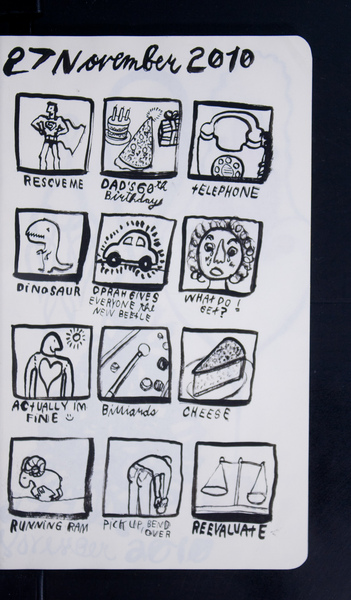 27 November 2010
RESCUE ME
DAD'S 60th
Birthday
tELEPHONE
DINOSAUR
OPRAH GIVES
EVERYONE the
NEW BEETLE
WHAT DO I
GET?
ACTUALLY IM
FINE
Billiards
CHEESE
RUNNING RAM
PICK UP, BEND
OVER
REEVALUATE